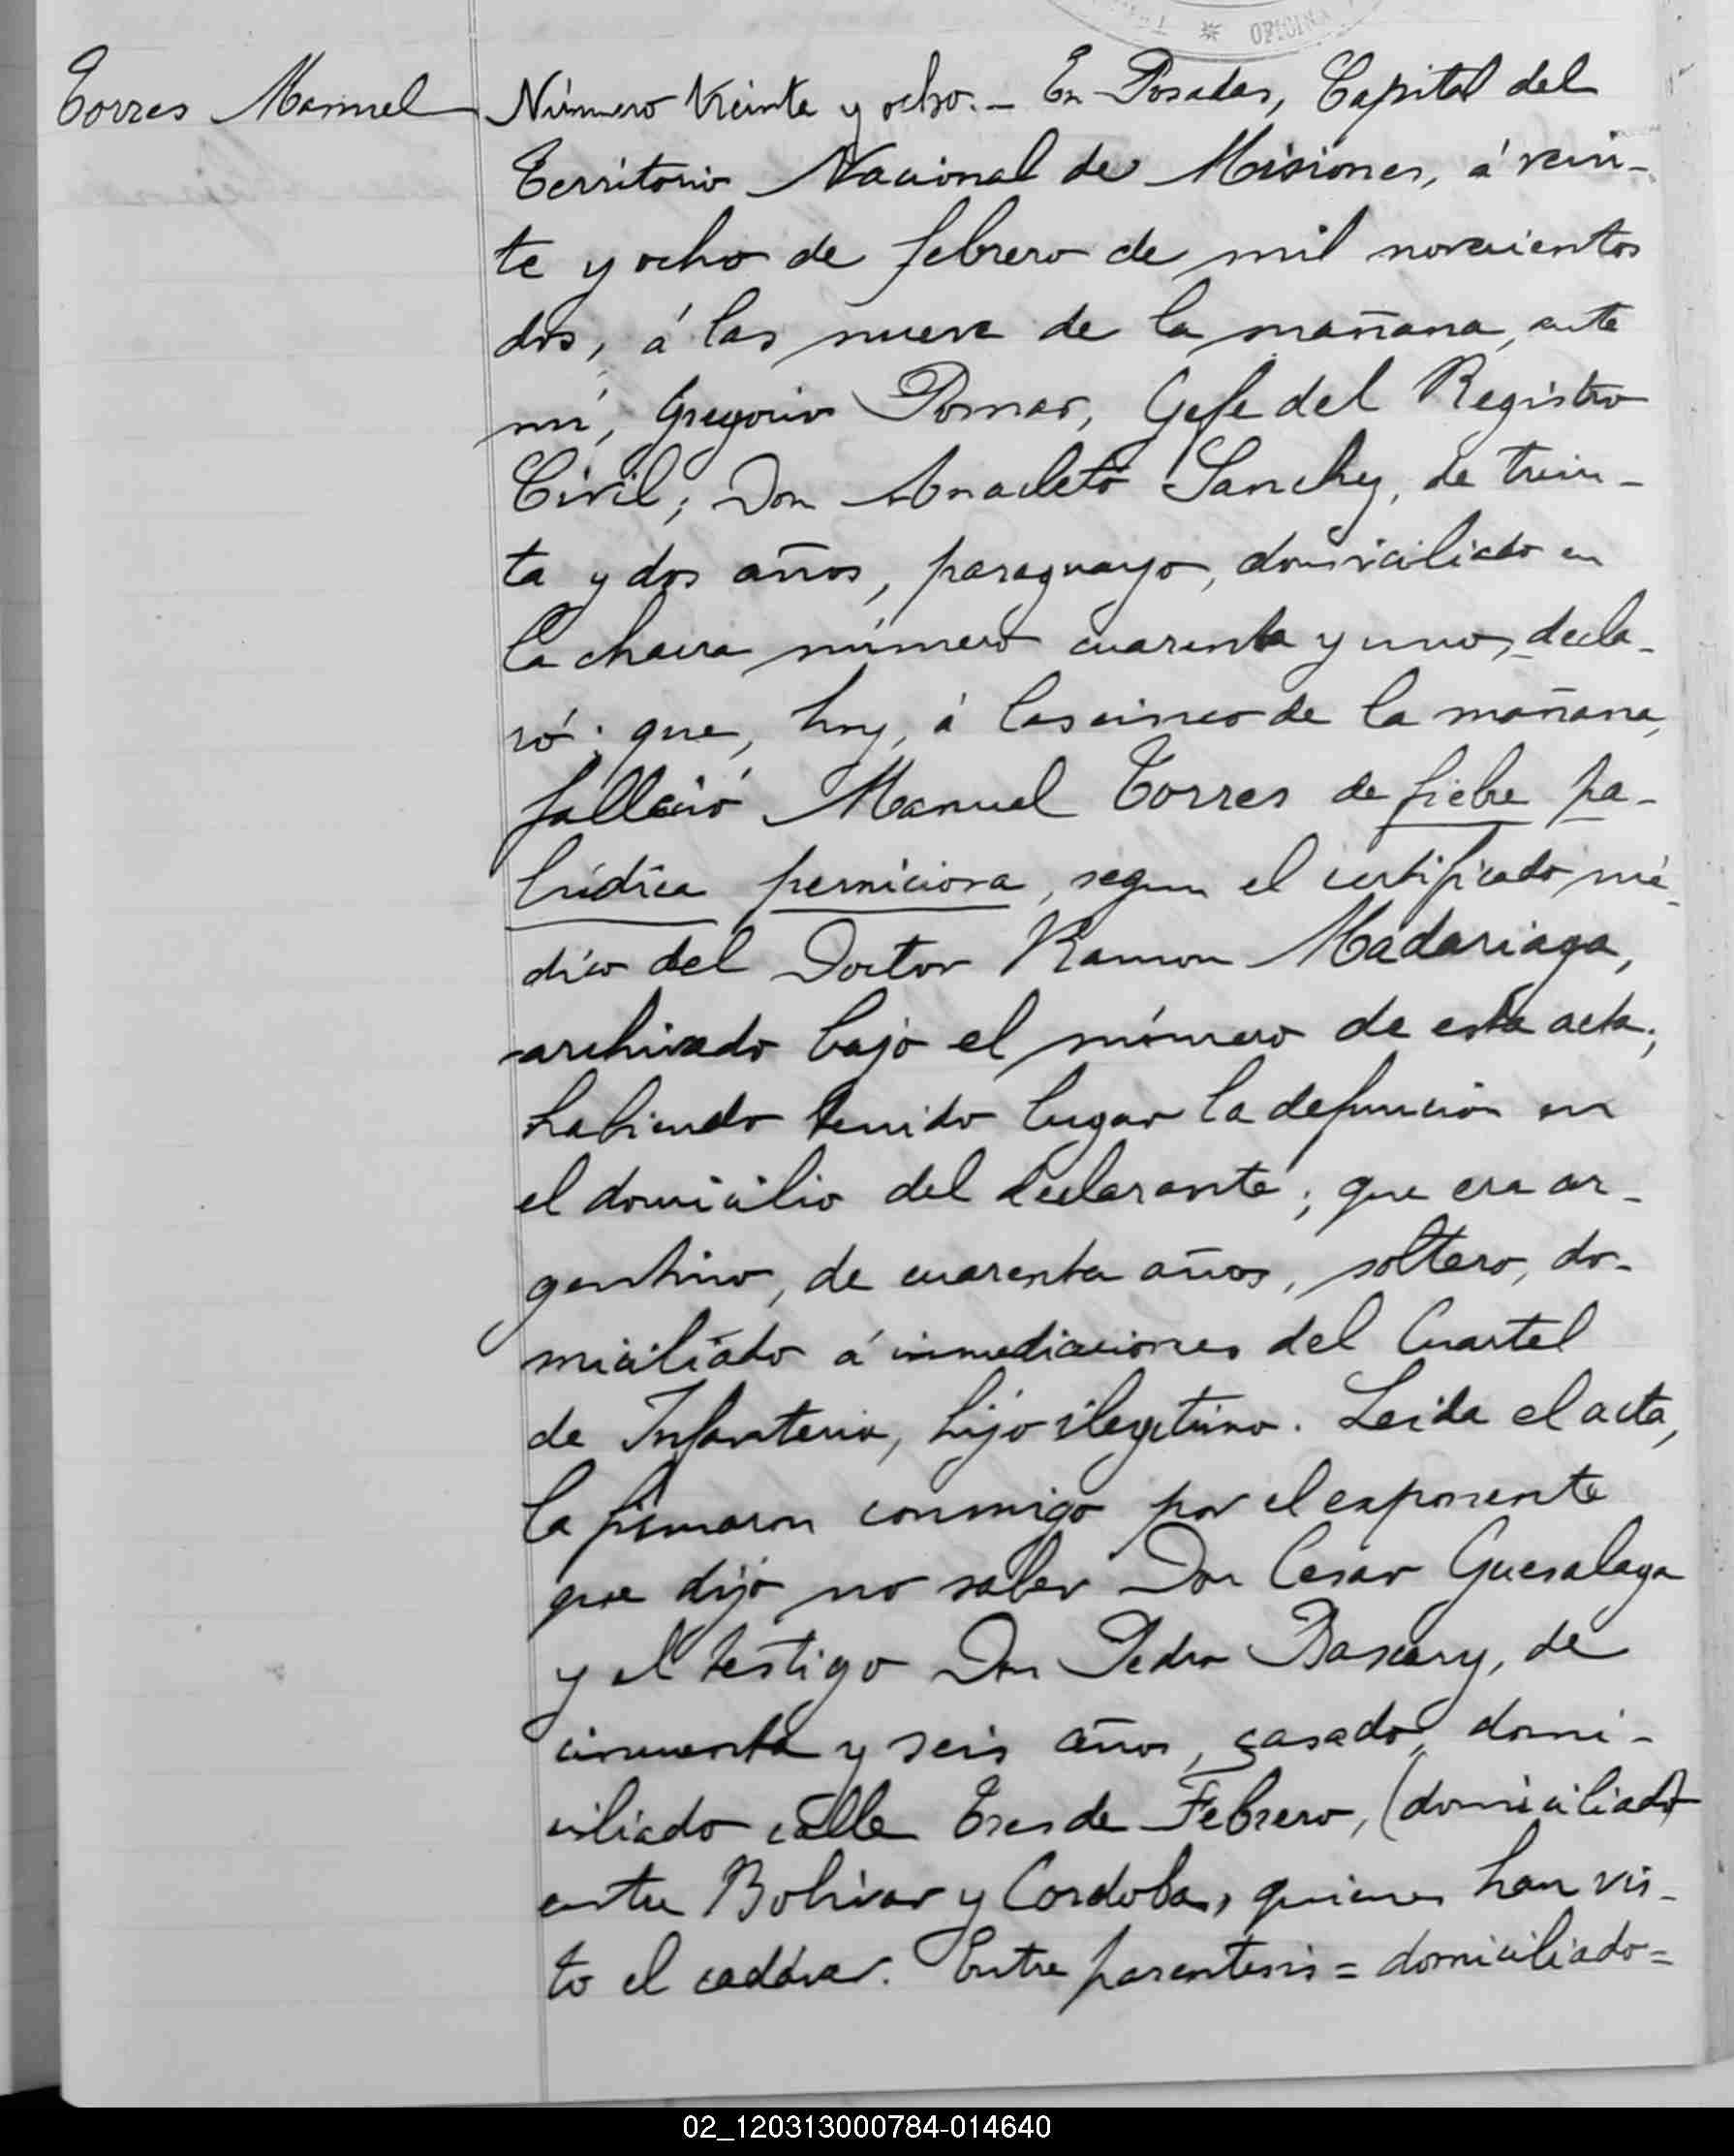 OFICINA
Torres Manuel
Número Veinte y ocho.- En Posadas, Capital del
Territorio Nacional de Misiones, á vein-
te y ocho de febrero de mil novecientos
dos, á las nueve de la mañana, ante
mí, Gregorio Pomar, Gefe del Registro
Civil; Don Anacleto Sanchez, de trein-
ta y dos años, paraguayo, domiciliado en
la chacra número cuarenta y uno, decla-
ró: que, hoy, á las cinco de la mañana,
falleció Manuel Torres de fiebre pa-
lúdica perniciosa, segun el certificado mé-
dico del Doctor Ramon Madariaga,
archivado bajo el número de esta acta;
habiendo tenido lugar la defuncion en
el domicilio del declarante; que era ar-
gentino, de cuarenta años, soltero, do-
miciliado á inmediaciones del Cuartel
de Infanteria, hijo ilegitimo. Leida el acta,
la firmaron conmigo por el exponente
que dijo no saber Don Cesar Guesalaga
y el testigo Don Pedro Bascary, de
cincuenta y seis años, casado, domi-
ciliado calle Tres de Febrero, (domiciliado)
entre Bolivar y Cordoba, quienes han vis-
to el cadáver. Entre parentesis = domiciliado =
02_120313000784-014640